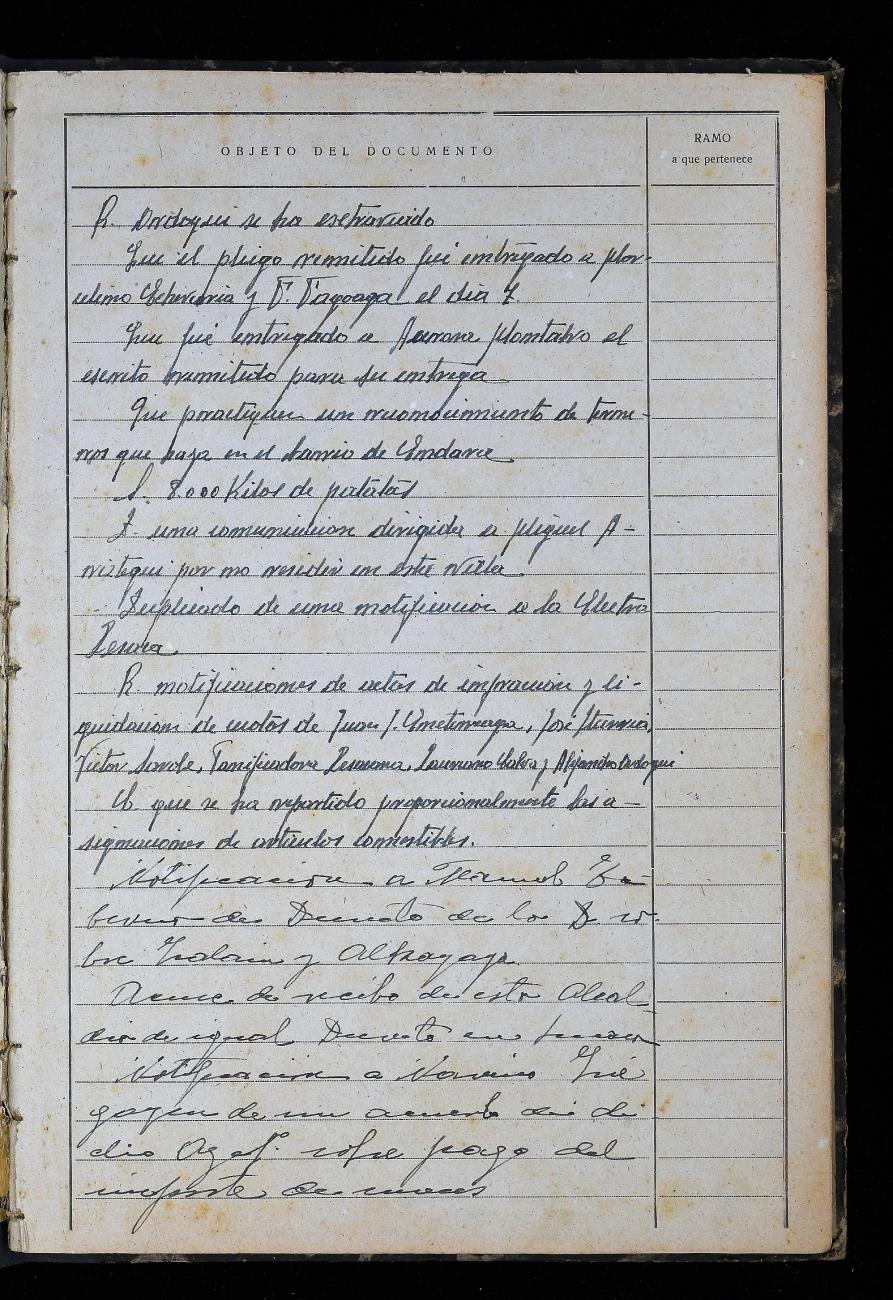 OBJETO DEL DOCUMENTO
RAMO
a que pertenece
R. Ordoqui se ha extraviado
Que el pliego remitido fué entregado a Mar-
celino Echeverria y T. Tagoaga el dia 7.
Que fué entregado a Aurora Montalvo el
escrito remitido para su entrega
Que practiquen un reconocimiento de terre-
nos que haga en el barrio de Endara
S. 8.000 Kilos de patatas
D. una comunicacion dirigida a Miguel A-
riztegui por no residir en esta villa
Duplicado de una notificacion a la Electra
Lesaca
R notificaciones de actas de infracción y li-
quidacion de cuotas de Juan J. José
Victor Panificadora Lesacana, Laureano y Alejandro Ordoqui
C. que se ha repartido proporcionalmente las a-
signaciones de articulos comestibles.
Notificacion a Manuel
del Decreto de los D. so-
bre y Altzagaga
Acuse de recibo de esta Alcal
dia de igual Decreto
Notificacion a
de un acuerdo de
dio sobre pago del
importe de